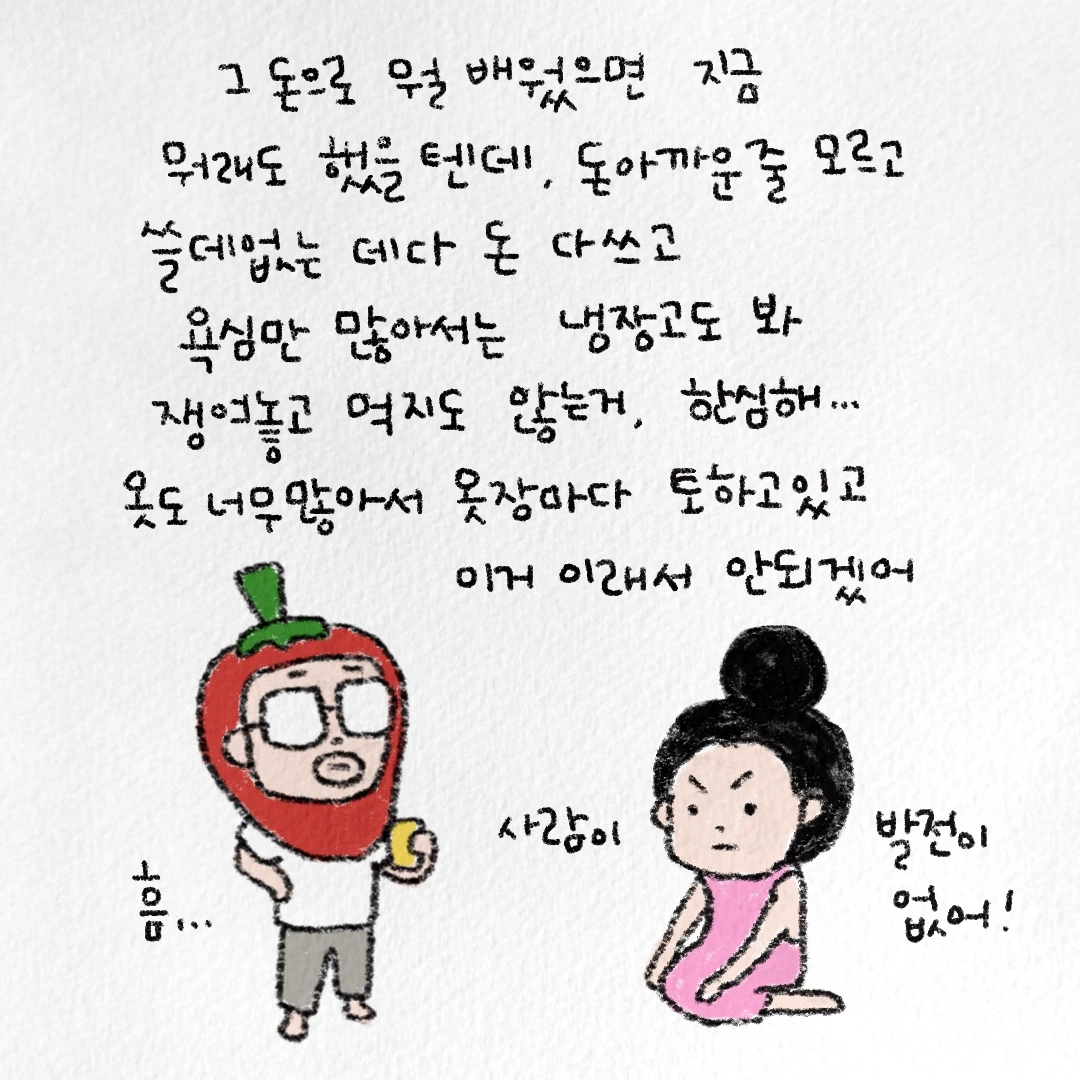 그 돈으로 뭘 배웠으면 지금
뭐래도 했을텐데, 돈아까운줄 모르고
쓸데없는 데다 돈 다쓰고
욕심만 많아서는 냉장고도 봐
쟁여놓고 먹지도 않는거, 한심해...
옷도 너무많아서 옷장마다 토하고있고
이거 이래서 안되겠어
사람이
발전이
없어!
흠...